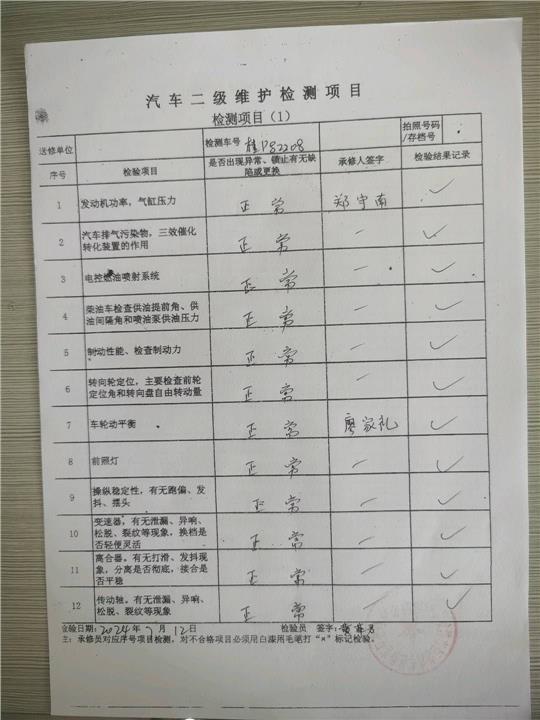 汽车二级维护检测项目
检测项目（1）
送修单位 检测车号 桂P82208 拍照号码/存档号
序号 检验项目 是否出现异常、锁止有无缺陷或更换 承修人签字 检验结果记录
1 发动机功率，气缸压力 正常 郑宇南 ✓
2 汽车排气污染物，三效催化转化装置的作用 正常 一 ✓
3 电控燃油喷射系统 正常 一 ✓
4 柴油车检查供油提前角、供油间隔角和喷油泵供油压力 正常 一 ✓
5 制动性能、检查制动力 正常 一 ✓
6 转向轮定位，主要检查前轮定位角和转向盘自由转动量 正常 一 ✓
7 车轮动平衡 正常 廖家礼 ✓
8 前照灯 正常 一 ✓
9 操纵稳定性，有无跑偏、发抖、摆头 正常 一 ✓
10 变速器，有无泄漏、异响、松脱、裂纹等现象，换档是否轻便灵活 正常 一 ✓
11 离合器。有无打滑、发抖现象，分离是否彻底，接合是否平稳 正常 一 ✓
12 传动轴。有无泄漏、异响、松脱、裂纹等现象 正常 一 ✓
检验日期：2024年7月12日 检验员 签字：
主：承修员对应序号项目检测，对不合格项目必须用白漆用毛笔打“×”标记检验。